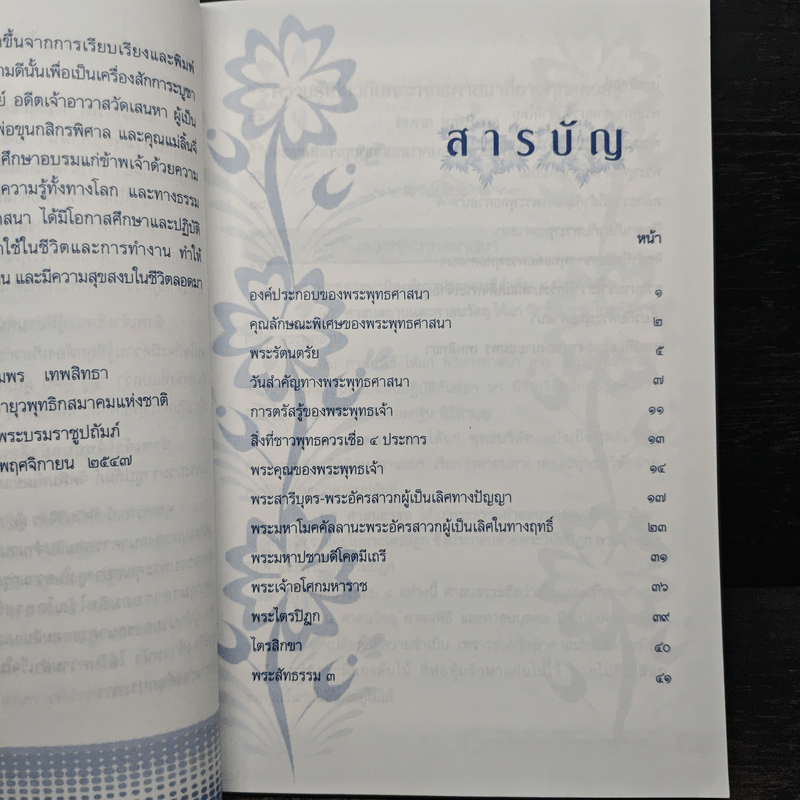 ขึ้นจากการเรียบเรียงและพิมพ์
ามดีนั้นเพื่อเป็นเครื่องสักการะบูชา
ย์ อดีตเจ้าอาวาสวัดเสนหา ผู้เป็น
พ่อขุนกสิกรพิศาล และคุณแม่ลิ้นจี่
ศึกษาอบรมแก่ข้าพเจ้าด้วยความ
ความรู้ทั้งทางโลก และทางธรรม
าสนา ได้มีโอกาสศึกษาและปฏิบัติ
ใช้ในชีวิตและการทำงาน ทำให้
และมีความสุขสงบในชีวิตตลอดมา
มพร เทพสิทธา
ายุวพุทธิกสมาคมแห่งชาติ
พระบรมราชูปถัมภ์
พฤศจิกายน ๒๕๔๗
สารบัญ
หน้า
องค์ประกอบของพระพุทธศาสนา ๑
คุณลักษณะพิเศษของพระพุทธศาสนา ๒
พระรัตนตรัย ๕
วันสำคัญทางพระพุทธศาสนา ๗
การตรัสรู้ของพระพุทธเจ้า ๑๑
สิ่งที่ชาวพุทธควรเชื่อ ๔ ประการ ๑๓
พระคุณของพระพุทธเจ้า ๑๔
พระสารีบุตร-พระอัครสาวกผู้เป็นเลิศทางปัญญา ๑๗
พระมหาโมคคัลลานะพระอัครสาวกผู้เป็นเลิศในทางฤทธิ์ ๒๓
พระมหาปชาบดีโคตมีเถรี ๓๑
พระเจ้าอโศกมหาราช ๓๖
พระไตรปิฎก ๓๙
ไตรสิกขา ๔๐
พระสัทธรรม ๓ ๔๑